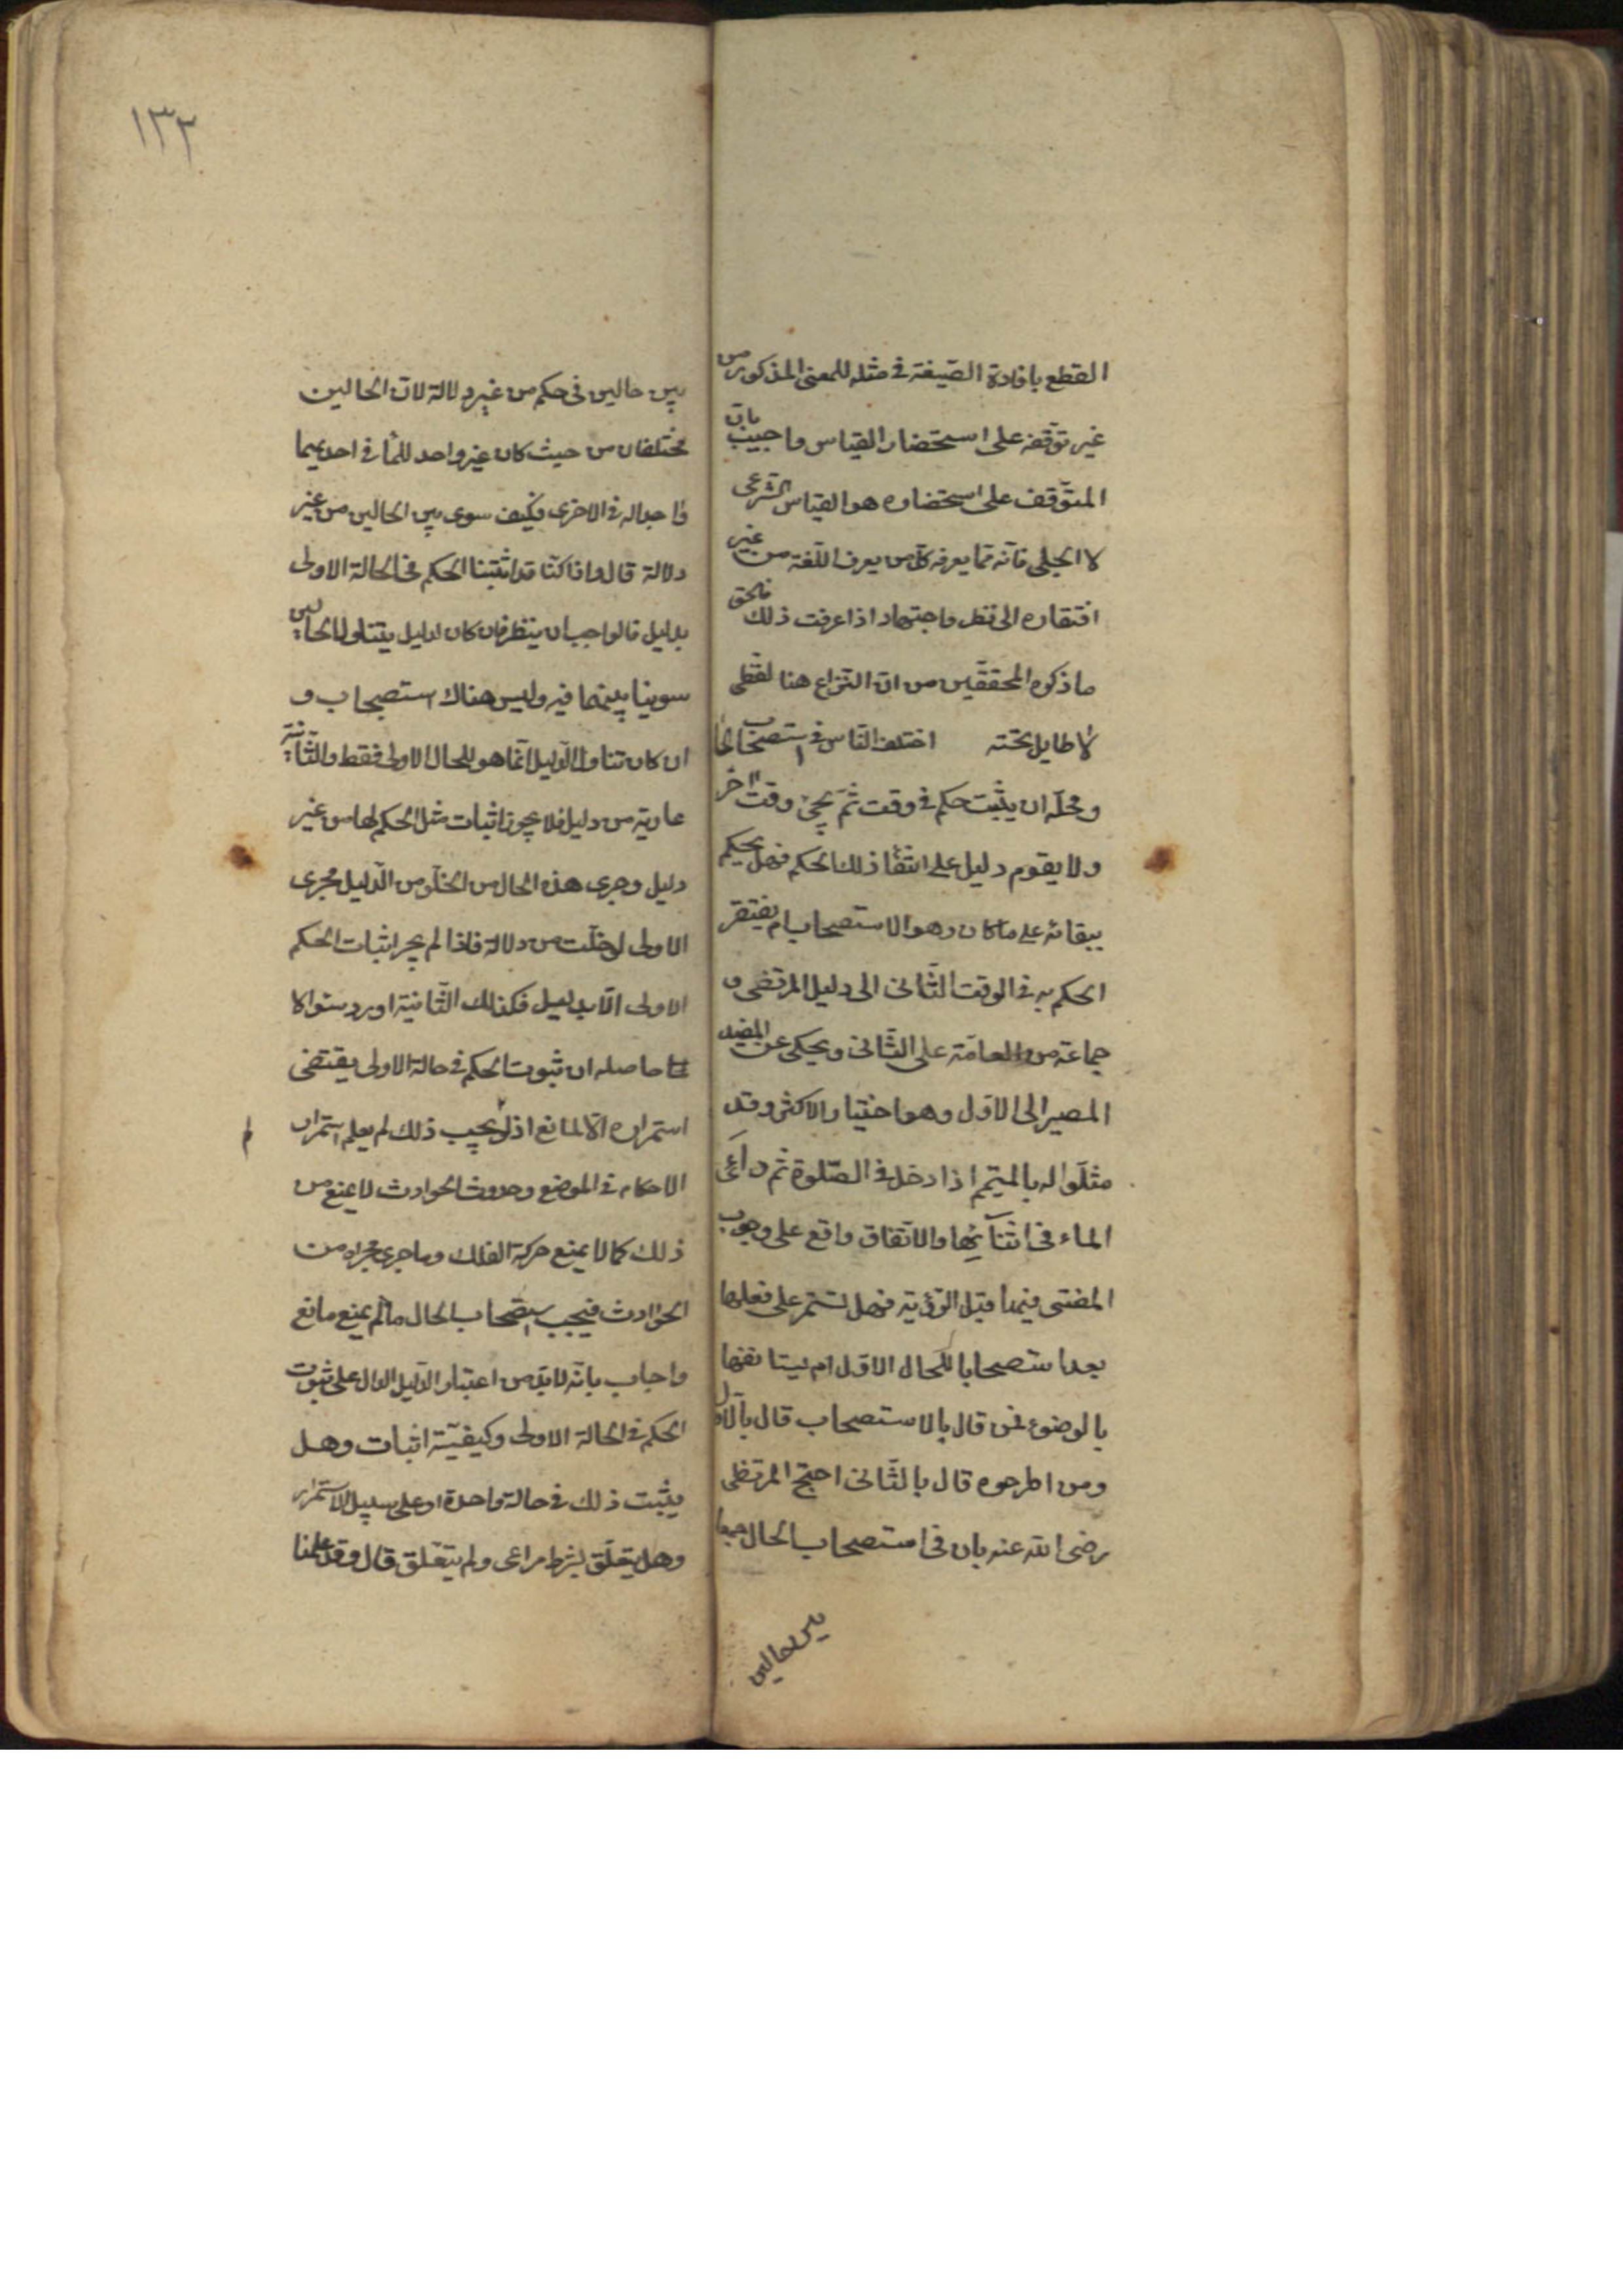 القطع بافادة الصّيغة فى مثله للمعنى المذكور من
غير توقّفه على استحضار القياس واجيب بان
المتوقّف على استحضاره هو القياس الشرعى
لا الجلى فانّه ممّا يعرفه كلّ من يعرف اللّغة من غير
افتقاره الى نظر واجتهاد اذا عرفت ذلك فالحق
ما ذكره المحققين من انّ النّزاع هنا لفظى
لا طايل تحته اختلف النّاس فى استصحاب الحا
ومحلّه ان يثبت حكم فى وقت ثمّ يجئ وقت اخر
ولا يقوم دليل على انتفاء ذلك الحكم فهل يحكم
ببقائه على ما كان وهو الاستصحاب ام يفتقر
الحكم به فى الوقت الثّانى الى دليل المرتضى و
جماعة من العامّة على الثّانى ويحكى عن المفيد
المصير الى الاوّل وهو اختيار الاكثر وقد
مثلّوا له بالمتيمم اذا دخل فى الصّلوة ثم راى
الماء فى اثنائها والاتّفاق واقع على وجوب
المضى فيها قبل الرّؤية فهل تستمر على فعلها
بعد استصحابا للحال الاوّل ام يستانفها
بالوضوء فمن قال بالاستصحاب قال بالاوّل
ومن اطرحوه قال بالثّانى احتج المرتضى
رضى الله عنه بان فى استصحاب الحال جمعا
بين حالين
١٣٢
بين حالين فى حكم من غير دلالة لانّ الحالين
مختلفان من حيث كان غير واجد للماء فى احديهما
واجدا له فى الاخرى فكيف سوى بين الحالين من غير
دلالة قال واذا كنّا قد اثبتنا الحكم فى الحالة الاولى
بدليل فالواجب ان ينظر فان كان الدليل يتناول الحالين
سوينا بينهما فيه وليس هناك استصحاب و
ان كان تناول الدّليل انّما هو للحال الاولى فقط والثّانية
عارية من دليل فلا يجوز اثبات مثل الحكم لها من غير
دليل وجرى هذه الحال من الخلّو من الدّليل مجرى
الاولى لو خلّت من دلالة فاذا لم يجز اثبات الحكم
الاولى الّا بدليل فكذلك الثّانية اورد سئوالا
حاصله ان ثبوت الحكم فى حالة الاولى يقتضى
استمراره الّا لمانع اذ لو لم يجب ذلك لم يعلم استمرار
الاحكام فى الموضع وحدوث الحوادث لا يمنع من
ذلك كما لا يمنع حركة الفلك وما جرى مجراه من
الحوادث فيجب استصحاب الحال ما لم يمنع مانع
واجاب بانّه لا بدّ من اعتبار الدّليل الدال على ثبوت
الحكم فى الحالة الاولى وكيفيّة اثبات وهل
يثبت ذلك فى حالة واحدة او على سبيل الاستمرار
وهل يتعلّق بشرط مراعى ولم يتعلّق قال وقد علمنا